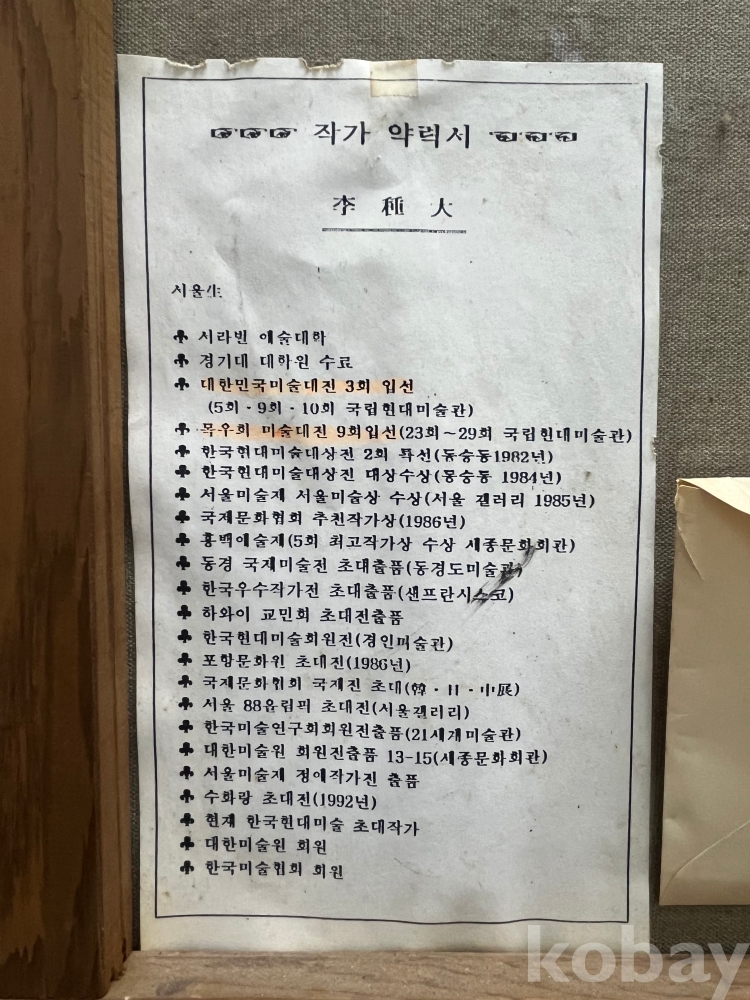 작가 약력서
李 種 大
서울生
♣ 서라벌 예술대학
♣ 경기대 대학원 수료
♣ 대한민국미술대전 3회 입선
(5회·9회·10회 국립현대미술관)
♣ 목우회 미술대전 9회입선(23회~29회 국립현대미술관)
♣ 한국현대미술대상전 2회 특선(동숭동1982년)
♣ 한국현대미술대상전 대상수상(동숭동 1984년)
♣ 서울미술제 서울미술상 수상(서울 갤러리 1985년)
♣ 국제문화협회 추천작가상(1986년)
♣ 홍백예술제(5회 최고작가상 수상 세종문화회관)
♣ 동경 국제미술전 초대출품(동경도미술관)
♣ 한국우수작가전 초대출품(샌프란시스코)
♣ 하와이 교민회 초대전출품
♣ 한국현대미술회원전(경인미술관)
♣ 포항문화원 초대전(1986년)
♣ 국제문화협회 국제전 초대(韓·日·中展)
♣ 서울 88올림픽 초대전(서울갤러리)
♣ 한국미술연구회회원전출품(21세계미술관)
♣ 대한미술원 회원전출품 13-15(세종문화회관)
♣ 서울미술제 정예작가전 출품
♣ 수화랑 초대전(1992년)
♣ 현재 한국현대미술 초대작가
♣ 대한미술원 회원
♣ 한국미술협회 회원
kobay